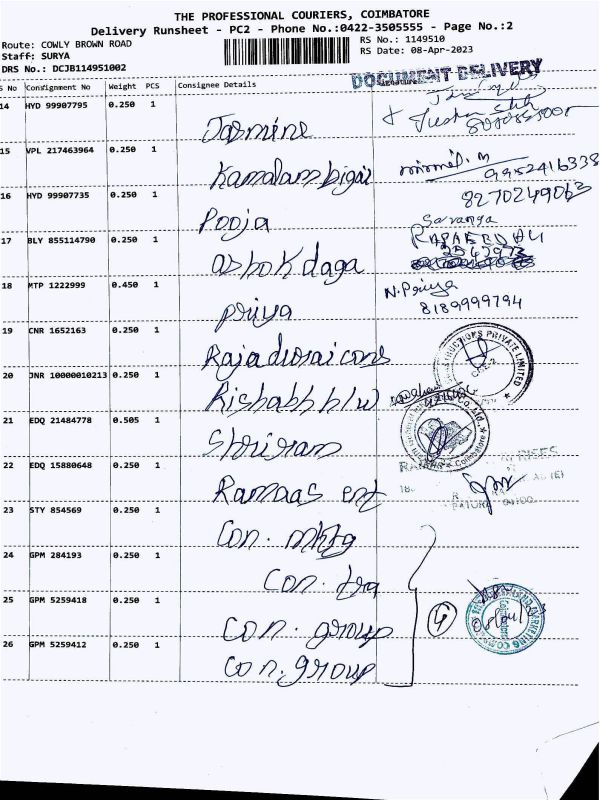 THE PROFESSIONAL COURIERS, COIMBATORE
Delivery Runsheet - PC2 - Phone No.:0422-3505555 - Page No.:2
Route: COWLY BROWN ROAD RS No.: 1149510
Staff: SURYA RS Date: 08-Apr-2023
DRS No.: DCJB114951002
DOCUMENT DELIVERY
S No Consignment No Weight PCS Consignee Details Signature
14 HYD 99907795 0.250 1
Jasmine
15 VPL 217463964 0.250 1
Kamalambigai 9952416338
16 HYD 99907735 0.250 1 8270249063
Pooja Saranya
17 BLY 855114790 0.250 1
ashok daga
18 MTP 1222999 0.450 1 N.Priya
priya 8189999794
19 CNR 1652163 0.250 1
Rajadurai cons
20 JNR 10000010213 0.250 1
Rishabh h/w
21 EDQ 21484778 0.505 1
Shriram
22 EDQ 15880648 0.250 1
Ramaas ent
23 STY 854569 0.250 1
Con. mktg
24 GPM 284193 0.250 1
Con. tra
25 GPM 5259418 0.250 1
Con. group 4
26 GPM 5259412 0.250 1
Con. group